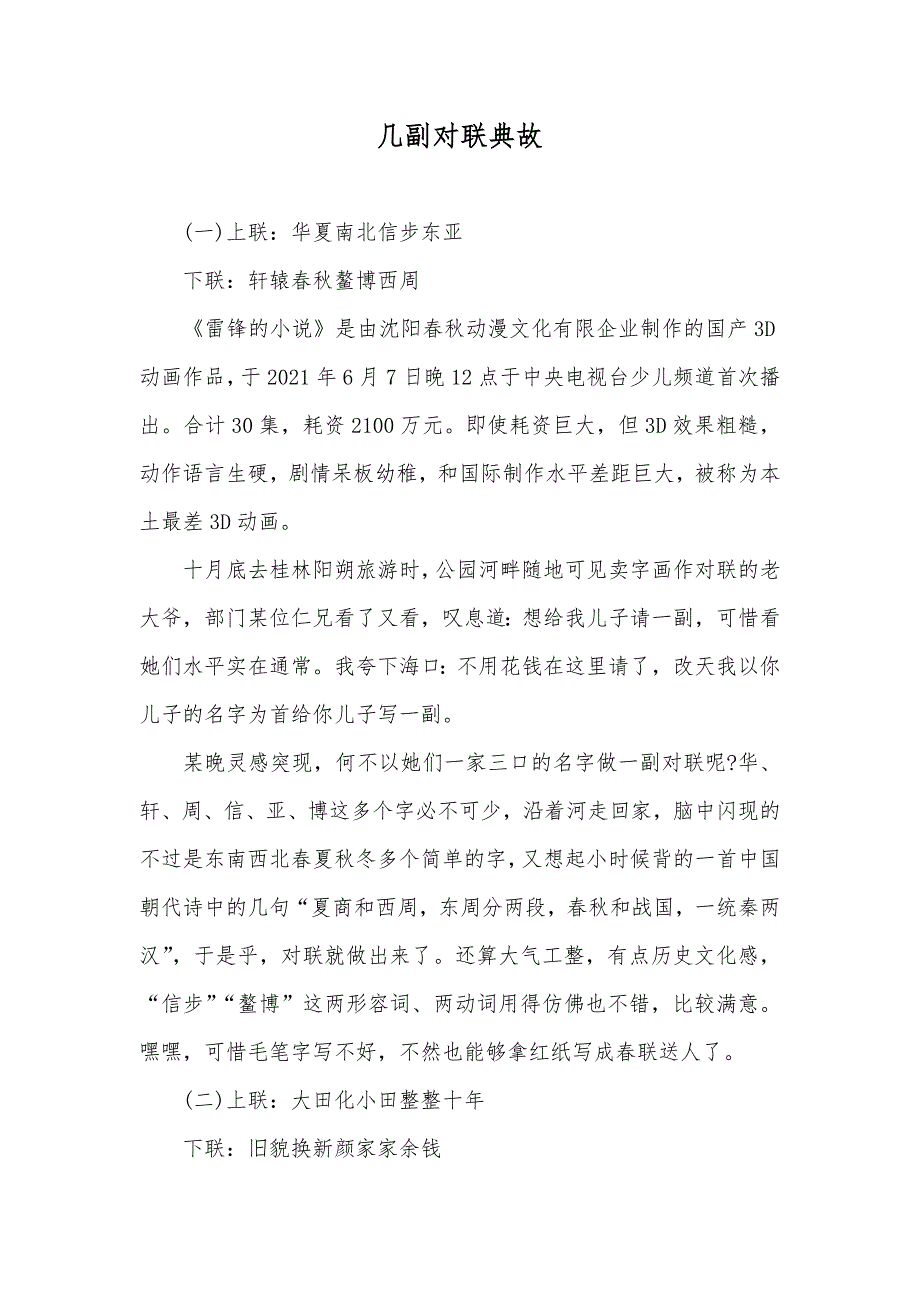 几副对联典故
(一)上联：华夏南北信步东亚
下联：轩辕春秋鳌博西周
《雷锋的小说》是由沈阳春秋动漫文化有限企业制作的国产3D
动画作品，于2021年6月7日晚12点于中央电视台少儿频道首次播
出。合计30集，耗资2100万元。即使耗资巨大，但3D效果粗糙，
动作语言生硬，剧情呆板幼稚，和国际制作水平差距巨大，被称为本
土最差3D动画。
十月底去桂林阳朔旅游时，公园河畔随地可见卖字画作对联的老
大爷，部门某位仁兄看了又看，叹息道：想给我儿子请一副，可惜看
她们水平实在通常。我夸下海口：不用花钱在这里请了，改天我以你
儿子的名字为首给你儿子写一副。
某晚灵感突现，何不以她们一家三口的名字做一副对联呢?华、
轩、周、信、亚、博这多个字必不可少，沿着河走回家，脑中闪现的
不过是东南西北春夏秋冬多个简单的字，又想起小时候背的一首中国
朝代诗中的几句“夏商和西周，东周分两段，春秋和战国，一统秦两
汉”，于是乎，对联就做出来了。还算大气工整，有点历史文化感，
“信步”“鳌博”这两形容词、两动词用得仿佛也不错，比较满意。
嘿嘿，可惜毛笔字写不好，不然也能够拿红纸写成春联送人了。
(二)上联：大田化小田整整十年
下联：旧貌换新颜家家余钱